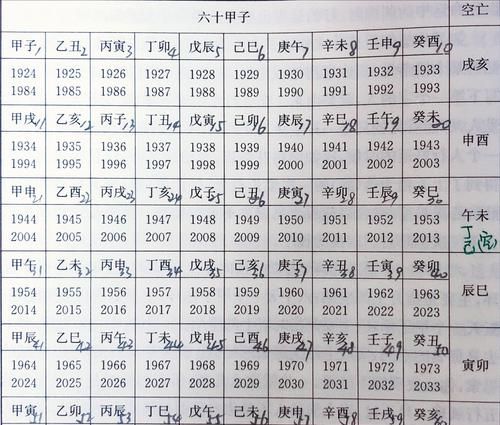 六十甲子 空亡
甲子1 乙丑2 丙寅3 丁卯4 戊辰5 己巳6 庚午7 辛未8 壬申9 癸酉10 戌亥
1924 1925 1926 1927 1928 1929 1930 1931 1932 1933
1984 1985 1986 1987 1988 1989 1990 1991 1992 1993
甲戌11 乙亥12 丙子13 丁丑14 戊寅15 己卯16 庚辰17 辛巳18 壬午19 癸未20 申酉
1934 1935 1936 1937 1938 1939 1940 1941 1942 1943
1994 1995 1996 1997 1998 1999 2000 2001 2002 2003
甲申21 乙酉22 丙戌23 丁亥24 戊子25 己丑26 庚寅27 辛卯28 壬辰29 癸巳30 午未
1944 1945 1946 1947 1948 1949 1950 1951 1952 1953 丁
2004 2005 2006 2007 2008 2009 2010 2011 2012 2013 己
甲午31 乙未32 丙申33 丁酉34 戊戌35 己亥36 庚子37 辛丑38 壬寅39 癸卯40 辰巳
1954 1955 1956 1957 1958 1959 1960 1961 1962 1963
2014 2015 2016 2017 2018 2019 2020 2021 2022 2023
甲辰41 乙巳42 丙午43 丁未44 戊申45 己酉46 庚戌47 辛亥48 壬子49 癸丑50 寅卯
1964 1965 1966 1967 1968 1969 1970 1971 1972 1973
2024 2025 2026 2027 2028 2029 2030 2031 2032 2033
甲寅51 乙卯52 丙辰53 丁巳54 戊午55 己未56 庚申57 辛酉58 壬戌59 癸亥60